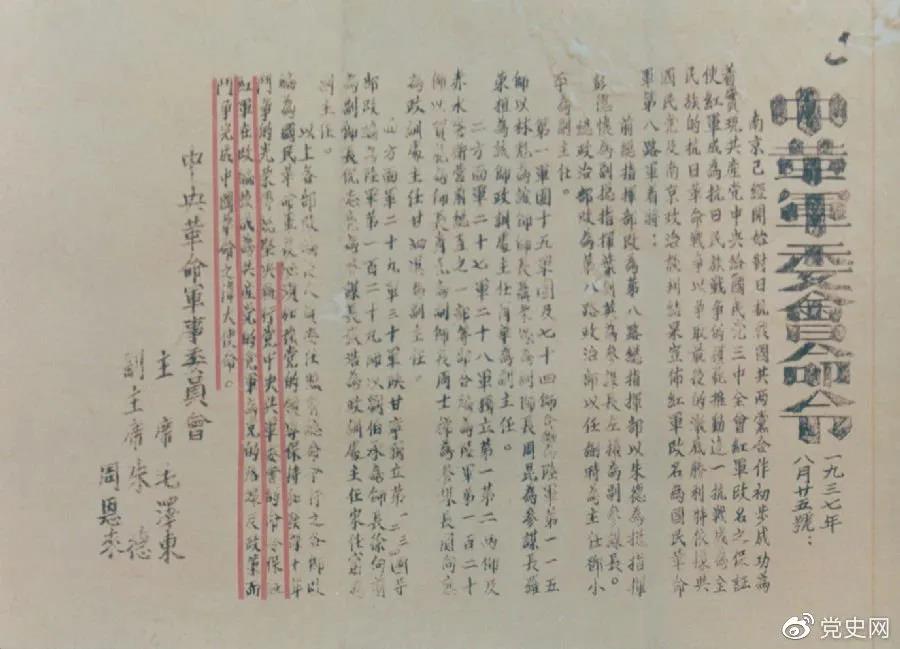 中華軍委會命令
一九三七年
八月廿五號：
南京已經開始對日抗戰國共兩黨合作初步成功為
着實現共產党中央給國民党三中全會紅軍改名之保証
使紅軍成為抗日民族戰爭的模範推動這一抗戰成為全
民族的抗日革命戰爭以爭取最後的澈底勝利特依據與
國民党及南京政治談判結果宣佈紅軍改名為國民革命
軍第八路軍着將：
前總指揮部改為第八路總指揮部以朱德為總指揮
彭德懷為副總指揮葉劍英為參謀長左權為副參謀長。
總政治部改為第八路政治部以任弼時為主任鄧小
平為副主任。
第一軍團十五軍團及七十四師合編為陸軍第一一五
師以林彪為該師師長聶榮臻為副師長周昆為參謀長羅
榮桓為該師政訓處主任蕭華為副主任。
二方面軍二十七軍二十八軍獨立第一第二兩師及
赤水警衛營前總直之一部等部合編為陸軍第一百二十
師以賀龍為師長蕭克為副師長周士第為參謀長關向應
為政訓處主任甘泗淇為副主任。
四方面軍二十九軍三十軍陝甘寧獨立第一二三四等
部改編為陸軍第一百二十九師以劉伯承為師長徐向前
為副師長倪志亮為參謀長張浩為政訓處主任宋任窮為
副主任。
以上各部改編後人員委任照前總命令行之各部改
編為國民革命軍後必須加強党的領導保持和發揮十年
鬥爭的光榮傳統堅決執行党中央與軍委會的命令保証
紅軍在改編後成為共產党的党軍為党的路線及政策而
鬥爭完成中國革命之偉大使命。
中央革命軍事委員會
主席毛澤東
副主席朱德
周恩來
党史网